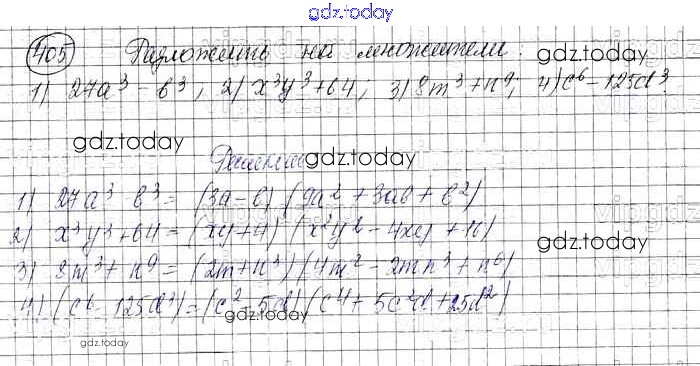 gdz.today
405 Разложить на множители: gdz.today
1) 27a³ - b³, 2) x³y³+64, 3) 8m³+n⁹, 4) c⁶ - 125d³
gdz.today
Решение gdz.today
1) 27a³ b³ = (3a-b) (9a² + 3ab + b²)
2) x³y³+64 = (xy+4) (x²y² - 4xy + 16)
gdz.today
3) 8m³ + n⁹ = (2m+n³) (4m² - 2mn³ + n⁶)
4) (c⁶ - 125d³) = (c² - 5d) (c⁴ + 5c²d + 25d²)
gdz.today
gdz.today